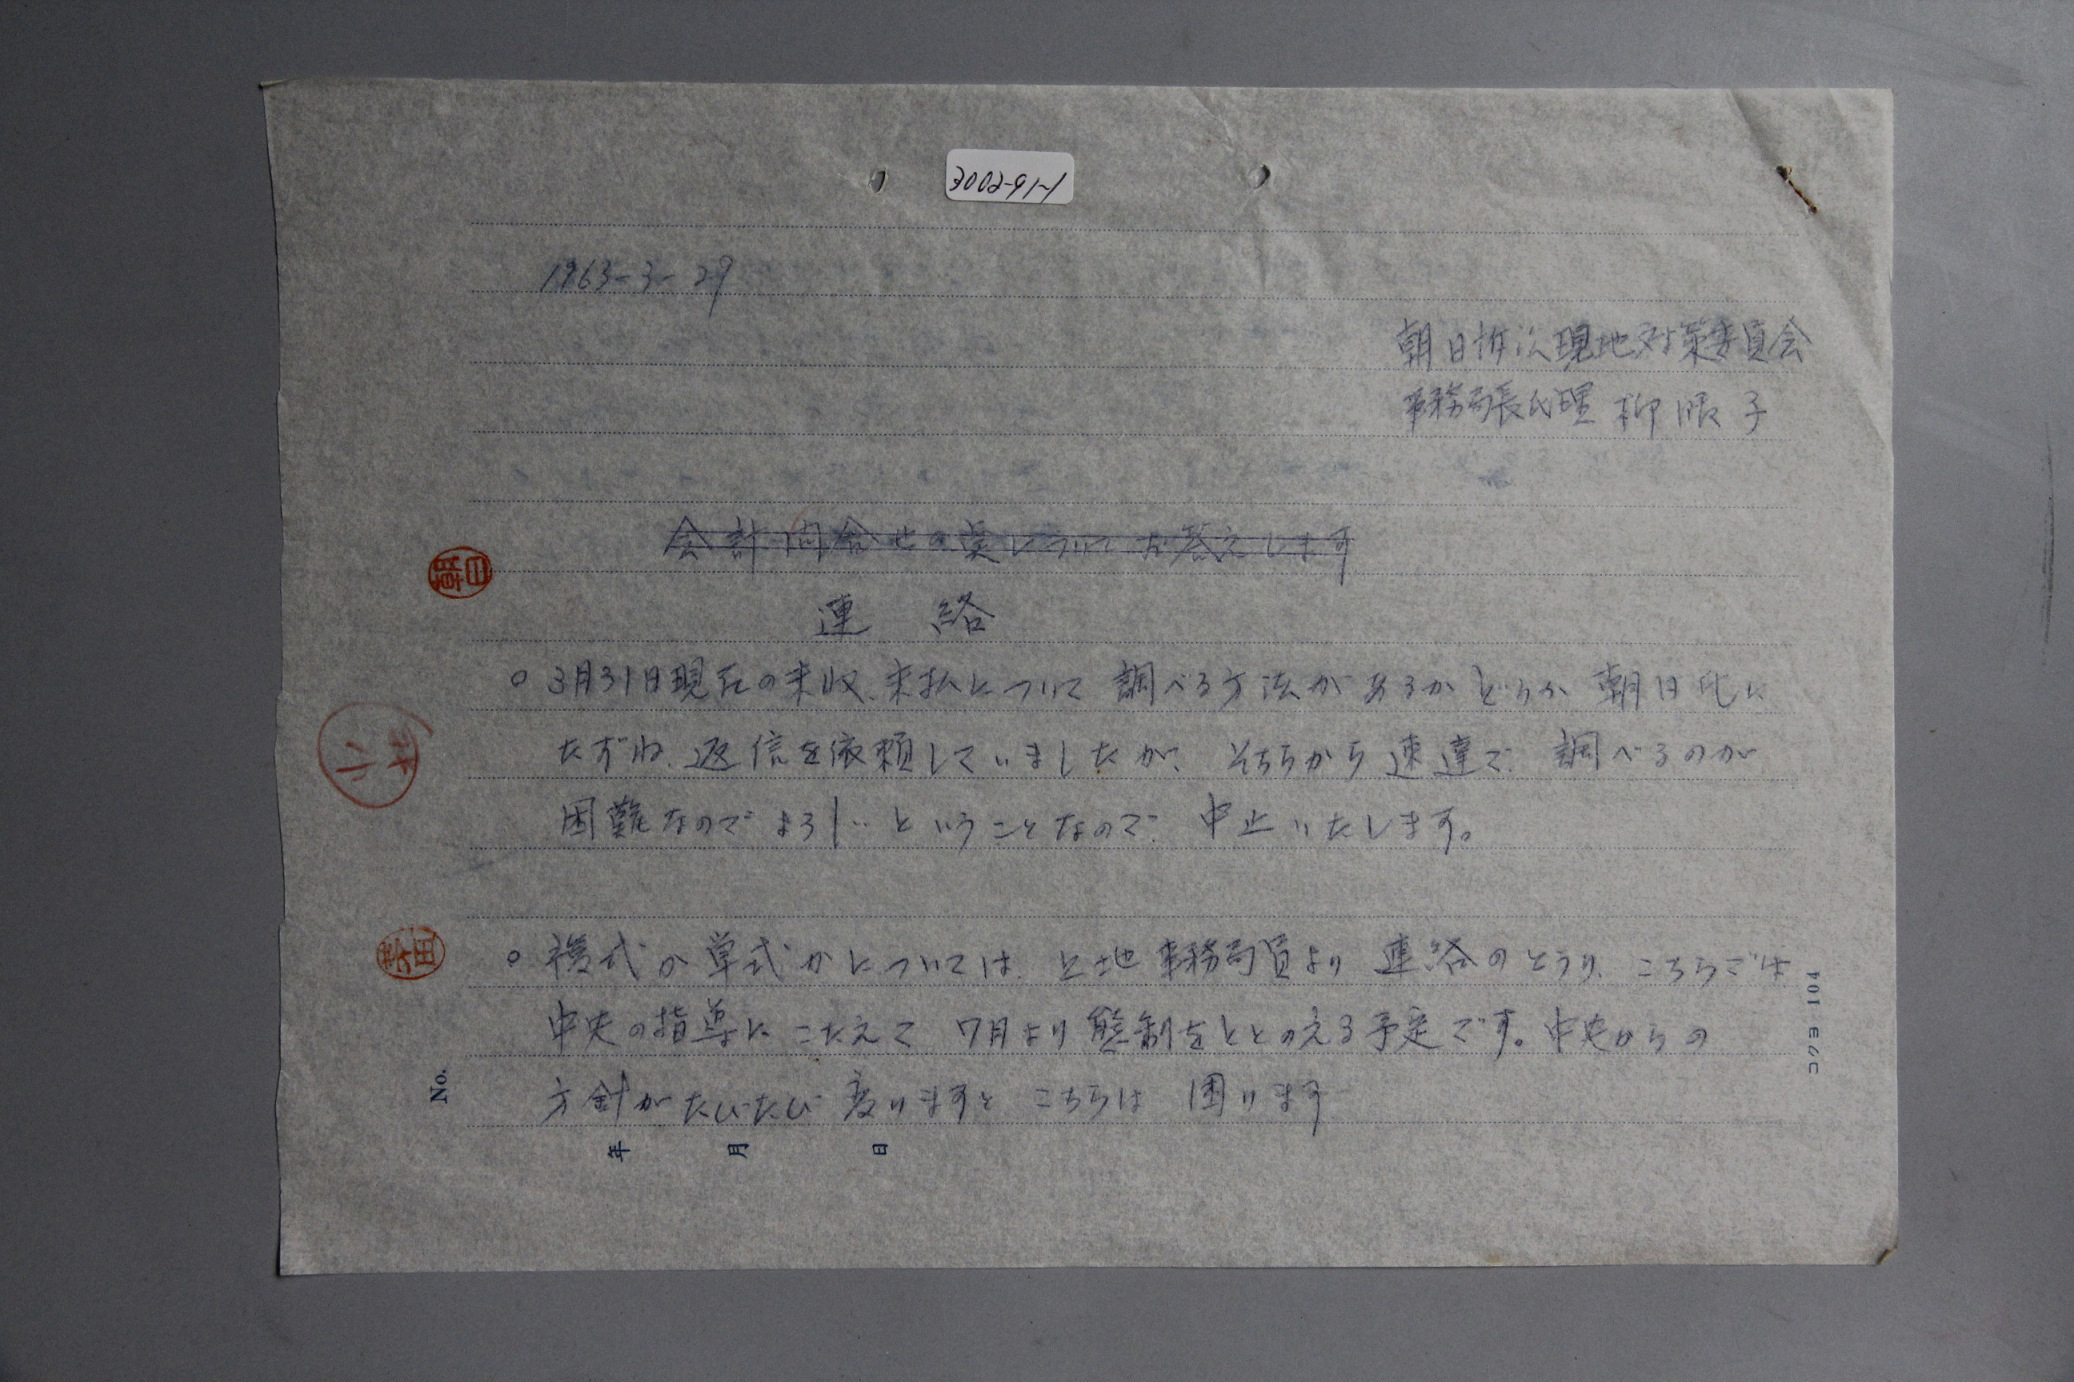 3002-91-1
1963-3-29
朝日訴訟現地対策委員会
事務局長代理 柳 暇子
会計問合せの奌についてお答えします
連 絡
○ 3月31日現在の未収、未払について 調べる方法があるかどうか 朝日氏に
たずね、返信を依頼していましたが、そちらから速達で、調べるのが
困難なのでよろしい ということなので、中止いたします。
○ 複式か単式かについては、上地事務局員より 連絡のとうり、こちらでは
中央の指導にこたえて 7月より態制をととのえる予定です。中央からの
方針がたびたび変りますと こちらは 困ります
No.
年 月 日